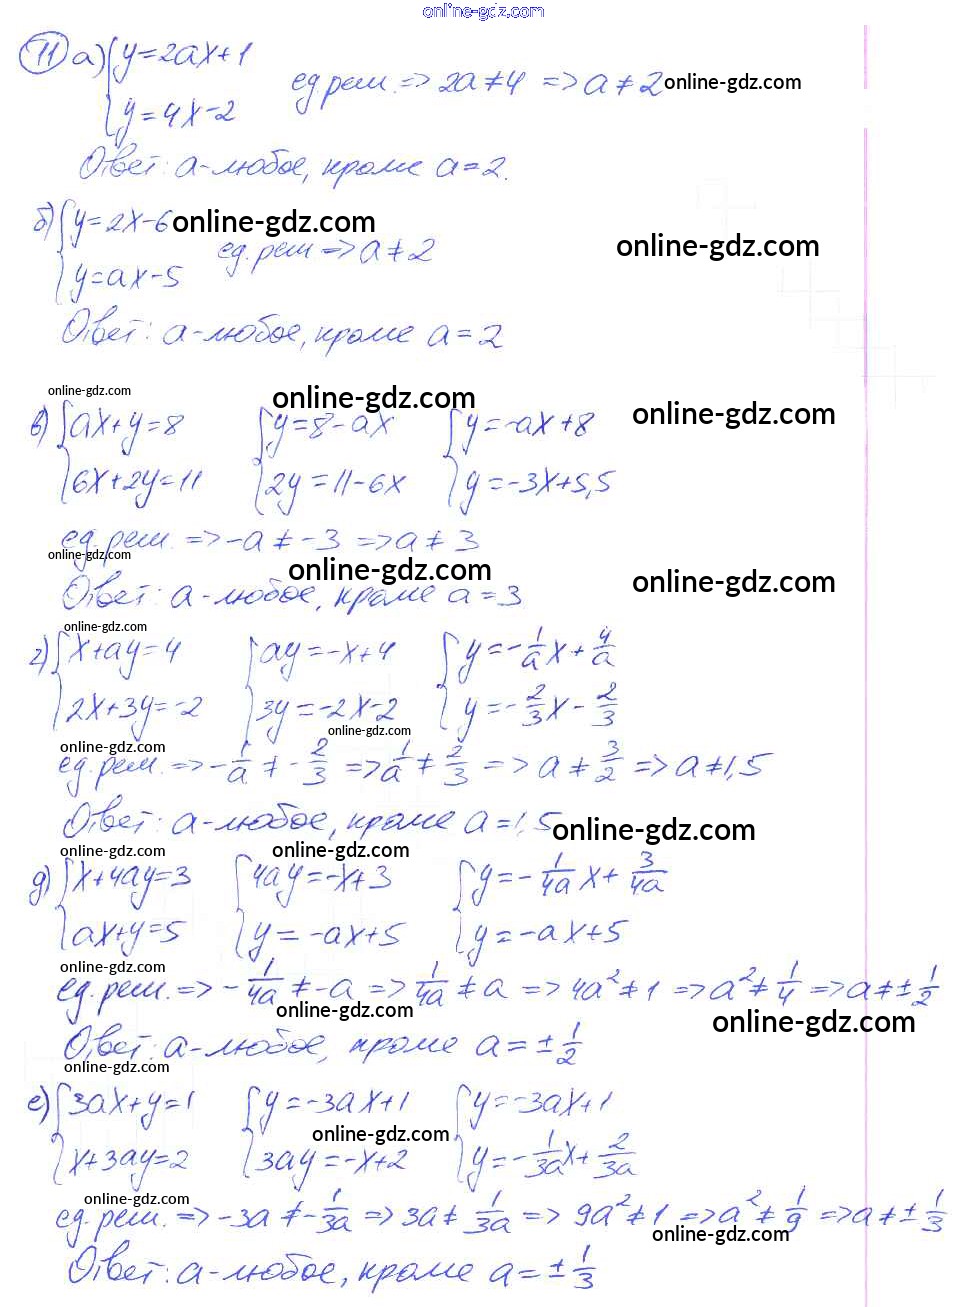 online-gdz.com
11 а) { y=2ax+1
ед.реш. => 2a≠4 => a≠2 online-gdz.com
y=4x-2
Ответ: a-любое, кроме a=2.
б) { y=2x-6 online-gdz.com
ед.реш => a≠2 online-gdz.com
y=ax-5
Ответ: a-любое, кроме a=2
online-gdz.com online-gdz.com online-gdz.com
в) { ax+y=8 { y=8-ax { y=-ax+8
6x+2y=11 2y=11-6x y=-3x+5,5
ед.реш. => -a≠-3 => a≠3
online-gdz.com online-gdz.com online-gdz.com
Ответ: a-любое, кроме a=3
online-gdz.com
г) { x+ay=4 { ay=-x+4 { y=-1/a x+4/a
2x+3y=-2 3y=-2x-2 y=-2/3 x-2/3
online-gdz.com online-gdz.com
ед.реш. => -1/a≠-2/3 => 1/a≠2/3 => a≠3/2 => a≠1,5
Ответ: a-любое, кроме a=1,5 online-gdz.com
online-gdz.com online-gdz.com
д) { x+4ay=3 { 4ay=-x+3 { y=-1/4a x+3/4a
ax+y=5 y=-ax+5 y=-ax+5
online-gdz.com
ед.реш. => -1/4a≠-a => 1/4a≠a => 4a²≠1 => a²≠1/4 => a≠±1/2
online-gdz.com online-gdz.com
Ответ: a-любое, кроме a=±1/2
online-gdz.com
е) { 3ax+y=1 { y=-3ax+1 { y=-3ax+1
online-gdz.com
x+3ay=2 3ay=-x+2 y=-1/3a x+2/3a
online-gdz.com
ед.реш. => -3a≠-1/3a => 3a≠1/3a => 9a²≠1 => a²≠1/9 => a≠±1/3
online-gdz.com
Ответ: a-любое, кроме a=±1/3